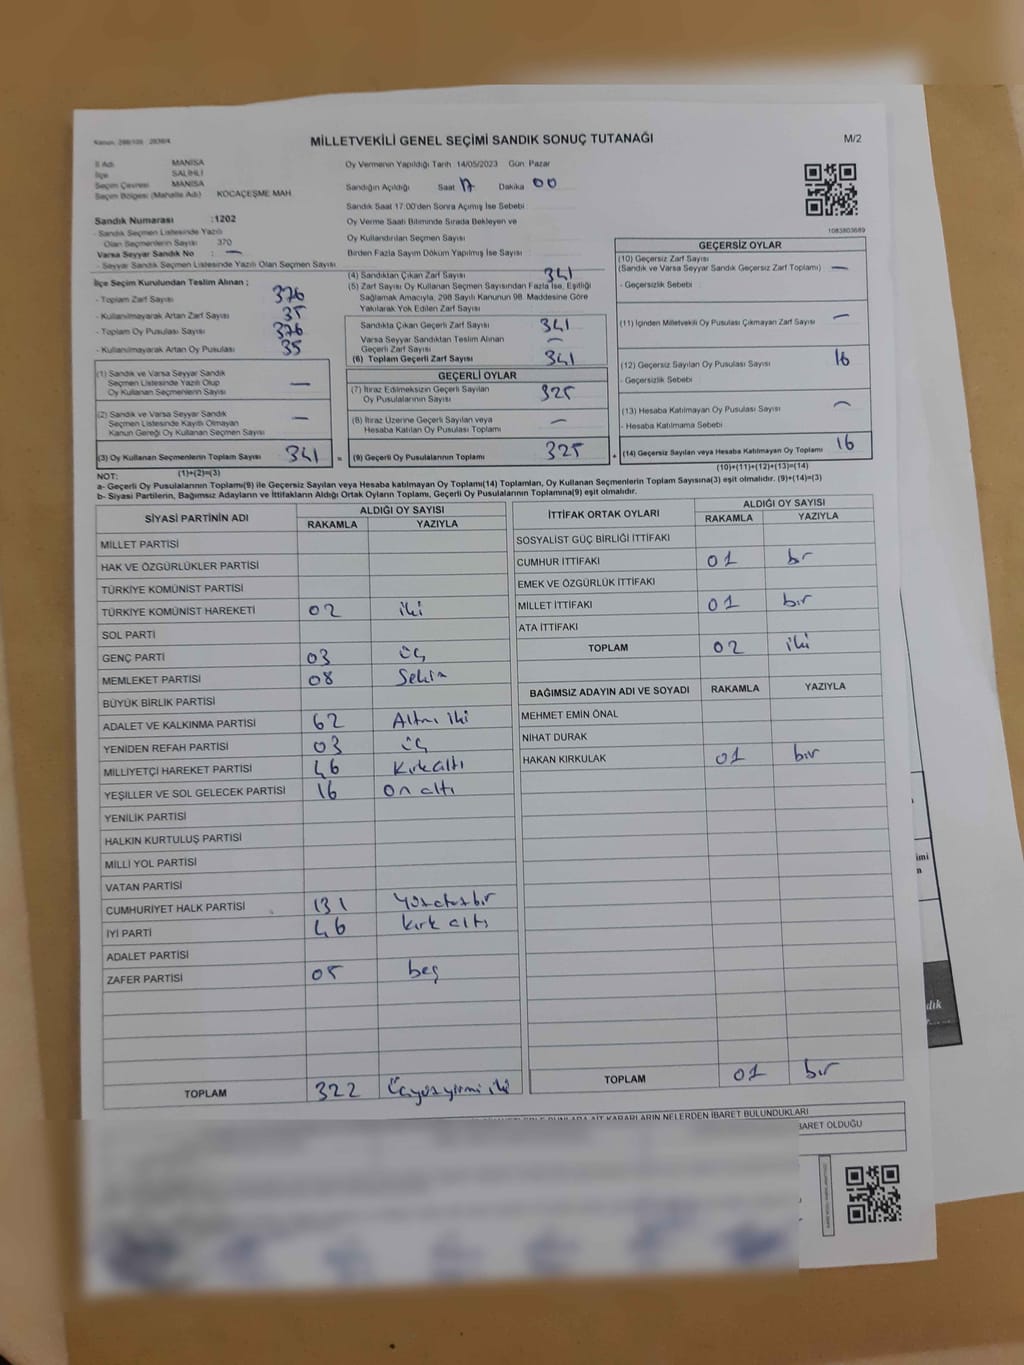 MİLLETVEKİLİ GENEL SEÇİMİ SANDIK SONUÇ TUTANAĞI
M/2
İl Adı MANİSA
İlçe SALİHLİ
Seçim Çevresi MANİSA
Seçim Bölgesi (Mahalle Adı) KOCAÇEŞME MAH
Sandık Numarası :1202
- Sandık Seçmen Listesinde Yazılı
Olan Seçmenlerin Sayısı 370
Varsa Seyyar Sandık No : —
- Seyyar Sandık Seçmen Listesinde Yazılı Olan Seçmen Sayısı
İlçe Seçim Kurulundan Teslim Alınan ;
- Toplam Zarf Sayısı 376
- Kullanılmayarak Artan Zarf Sayısı 35
- Toplam Oy Pusulası Sayısı 376
- Kullanılmayarak Artan Oy Pusulası 35
(1) Sandık ve Varsa Seyyar Sandık
Seçmen Listesinde Yazılı Olup
Oy Kullanan Seçmenlerin Sayısı —
(2) Sandık ve Varsa Seyyar Sandık
Seçmen Listesinde Kayıtlı Olmayan
Kanun Gereği Oy Kullanan Seçmen Sayısı —
(3) Oy Kullanan Seçmenlerin Toplam Sayısı 341
(1)+(2)=(3)
Oy Vermenin Yapıldığı Tarih 14/05/2023 Gün Pazar
Sandığın Açıldığı Saat 17 Dakika 00
Sandık Saat 17:00'den Sonra Açımış İse Sebebi
Oy Verme Saati Bitiminde Sırada Bekleyen ve
Oy Kullandırılan Seçmen Sayısı
Birden Fazla Sayım Döküm Yapılmış İse Sayısı
(4) Sandıktan Çıkan Zarf Sayısı 341
(5) Zarf Sayısı Oy Kullanan Seçmen Sayısından Fazla İse, Eşitliği
Sağlamak Amacıyla, 298 Sayılı Kanunun 98. Maddesine Göre
Yakılarak Yok Edilen Zarf Sayısı
Sandıkta Çıkan Geçerli Zarf Sayısı 341
Varsa Seyyar Sandıktan Teslim Alınan
Geçerli Zarf Sayısı —
(6) Toplam Geçerli Zarf Sayısı 341
GEÇERLİ OYLAR
(7) İtiraz Edilmeksizin Geçerli Sayılan
Oy Pusulalarının Sayısı 325
(8) İtiraz Üzerine Geçerli Sayılan veya
Hesaba Katılan Oy Pusulası Toplamı —
= (9) Geçerli Oy Pusulalarının Toplamı 325
1083803689
GEÇERSİZ OYLAR
(10) Geçersiz Zarf Sayısı
(Sandık ve Varsa Seyyar Sandık Geçersiz Zarf Toplamı) —
- Geçersizlik Sebebi
(11) İçinden Milletvekili Oy Pusulası Çıkmayan Zarf Sayısı —
(12) Geçersiz Sayılan Oy Pusulası Sayısı 16
- Geçersizlik Sebebi
(13) Hesaba Katılmayan Oy Pusulası Sayısı —
- Hesaba Katılmama Sebebi
+ (14) Geçersiz Sayılan veya Hesaba Katılmayan Oy Toplamı 16
(10)+(11)+(12)+(13)=(14)
NOT:
a- Geçerli Oy Pusulalarının Toplamı(9) ile Geçersiz Sayılan veya Hesaba katılmayan Oy Toplamı(14) Toplamları, Oy Kullanan Seçmenlerin Toplam Sayısına(3) eşit olmalıdır. (9)+(14)=(3)
b- Siyasi Partilerin, Bağımsız Adayların ve İttifakların Aldığı Ortak Oyların Toplamı, Geçerli Oy Pusulalarının Toplamına(9) eşit olmalıdır.
SİYASİ PARTİNİN ADI
ALDIĞI OY SAYISI
RAKAMLA YAZIYLA
MİLLET PARTİSİ
HAK VE ÖZGÜRLÜKLER PARTİSİ
TÜRKİYE KOMÜNİST PARTİSİ
TÜRKİYE KOMÜNİST HAREKETİ 02 iki
SOL PARTİ
GENÇ PARTİ 03 üç
MEMLEKET PARTİSİ 08 Sekiz
BÜYÜK BİRLİK PARTİSİ
ADALET VE KALKINMA PARTİSİ 62 Altmı iki
YENİDEN REFAH PARTİSİ 03 üç
MİLLİYETÇİ HAREKET PARTİSİ 46 Kırkaltı
YEŞİLLER VE SOL GELECEK PARTİSİ 16 on altı
YENİLİK PARTİSİ
HALKIN KURTULUŞ PARTİSİ
MİLLİ YOL PARTİSİ
VATAN PARTİSİ
CUMHURİYET HALK PARTİSİ 131 Yüzotuzbir
İYİ PARTİ 46 kırk altı
ADALET PARTİSİ
ZAFER PARTİSİ 05 beş
TOPLAM 322 Üçyüzyirmi iki
İTTİFAK ORTAK OYLARI
ALDIĞI OY SAYISI
RAKAMLA YAZIYLA
SOSYALİST GÜÇ BİRLİĞİ İTTİFAKI
CUMHUR İTTİFAKI 01 bir
EMEK VE ÖZGÜRLÜK İTTİFAKI
MİLLET İTTİFAKI 01 bir
ATA İTTİFAKI
TOPLAM 02 iki
BAĞIMSIZ ADAYIN ADI VE SOYADI RAKAMLA YAZIYLA
MEHMET EMİN ÖNAL
NİHAT DURAK
HAKAN KIRKULAK 01 bir
TOPLAM 01 bir
KARARLARIN NELERDEN İBARET BULUNDUKLARI
İBARET OLDUĞU